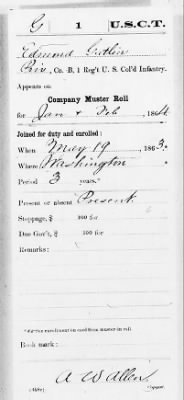 G 1 U.S.C.T.
Edmund Gatlin
Priv, Co. B, 1 Reg't U. S. Col'd Infantry.
Appears on
Company Muster Roll
for Jan & Feb, 1864.
Joined for duty and enrolled:
When May 19, 1863.
Where Washington
Period 3 years.*
Present or absent Present
Stoppage, $ 100 for
Due Gov't, $ 100 for
Remarks:
Book mark:
A W Allen